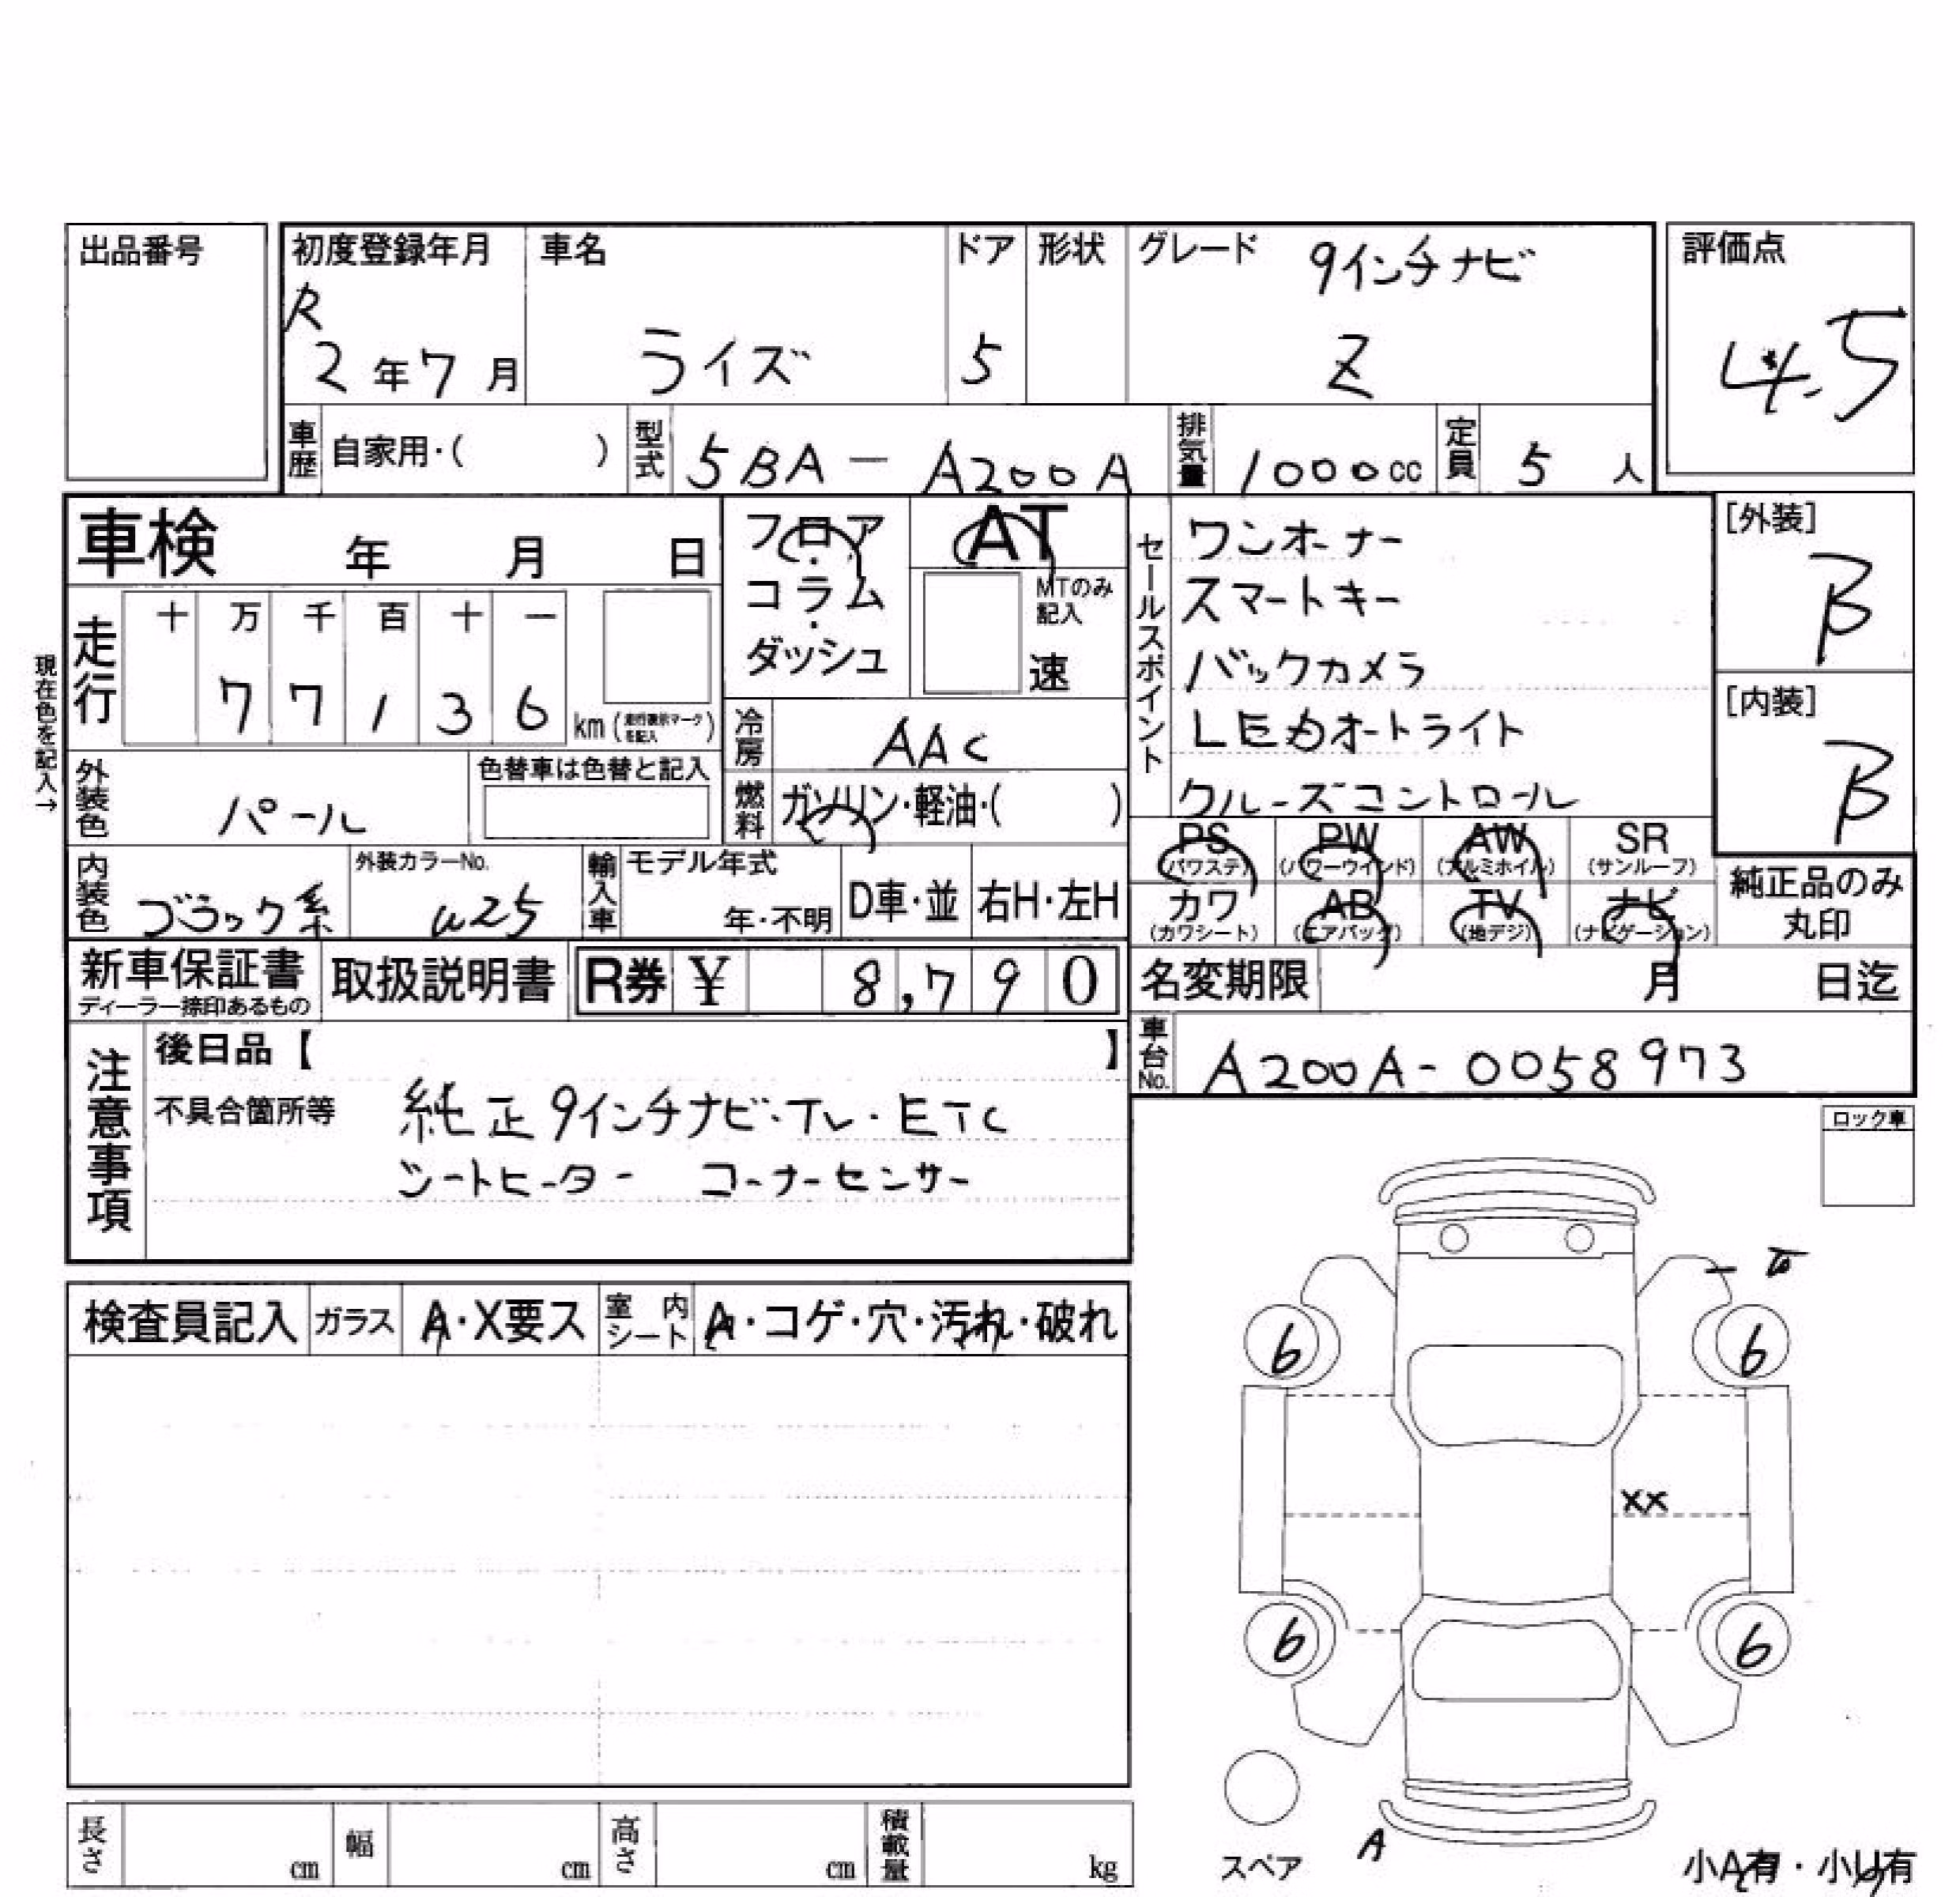 出品番号
初度登録年月 車名 ドア 形状 グレード 9インチナビ 評価点
R
2年7月 ライズ 5 Z 4.5
車歴 自家用・( ) 型式 5BA-A200A 排気量 1000cc 定員 5人
車検 年 月 日
フロア・コラム・ダッシュ
AT
MTのみ記入
速
セールスポイント
ワンオーナー
スマートキー
バックカメラ
LEDオートライト
クルーズコントロール
[外装]
B
[内装]
B
現在色を記入→
走行 十 万 千 百 十 一
7 7 1 3 6 km(走行表示マークを記入)
冷房 AAC
外装色 パール 色替車は色替と記入
燃料 ガソリン・軽油・( )
PS(パワステ) PW(パワーウィンド) AW(アルミホイル) SR(サンルーフ)
カワ(カワシート) AB(エアバッグ) TV(地デジ) ナビ(ナビゲーション)
純正品のみ丸印
内装色 ブラック系 外装カラーNo. W25 輸入車 モデル年式 年・不明 D車・並 右H・左H
新車保証書 ディーラー捺印あるもの 取扱説明書 R券 ¥ 8,790
名変期限 月 日迄
車台No. A200A-0058973
注意事項
後日品【 】
不具合箇所等 純正9インチナビ・TV・ETC
シートヒーター コーナーセンサー
ロック車
検査員記入 ガラス A・X要ス 室内シート A・コゲ・穴・汚れ・破れ
6 6
XX
6 6
A
スペア
小A有・小U有
長さ cm 幅 cm 高さ cm 積載量 kg